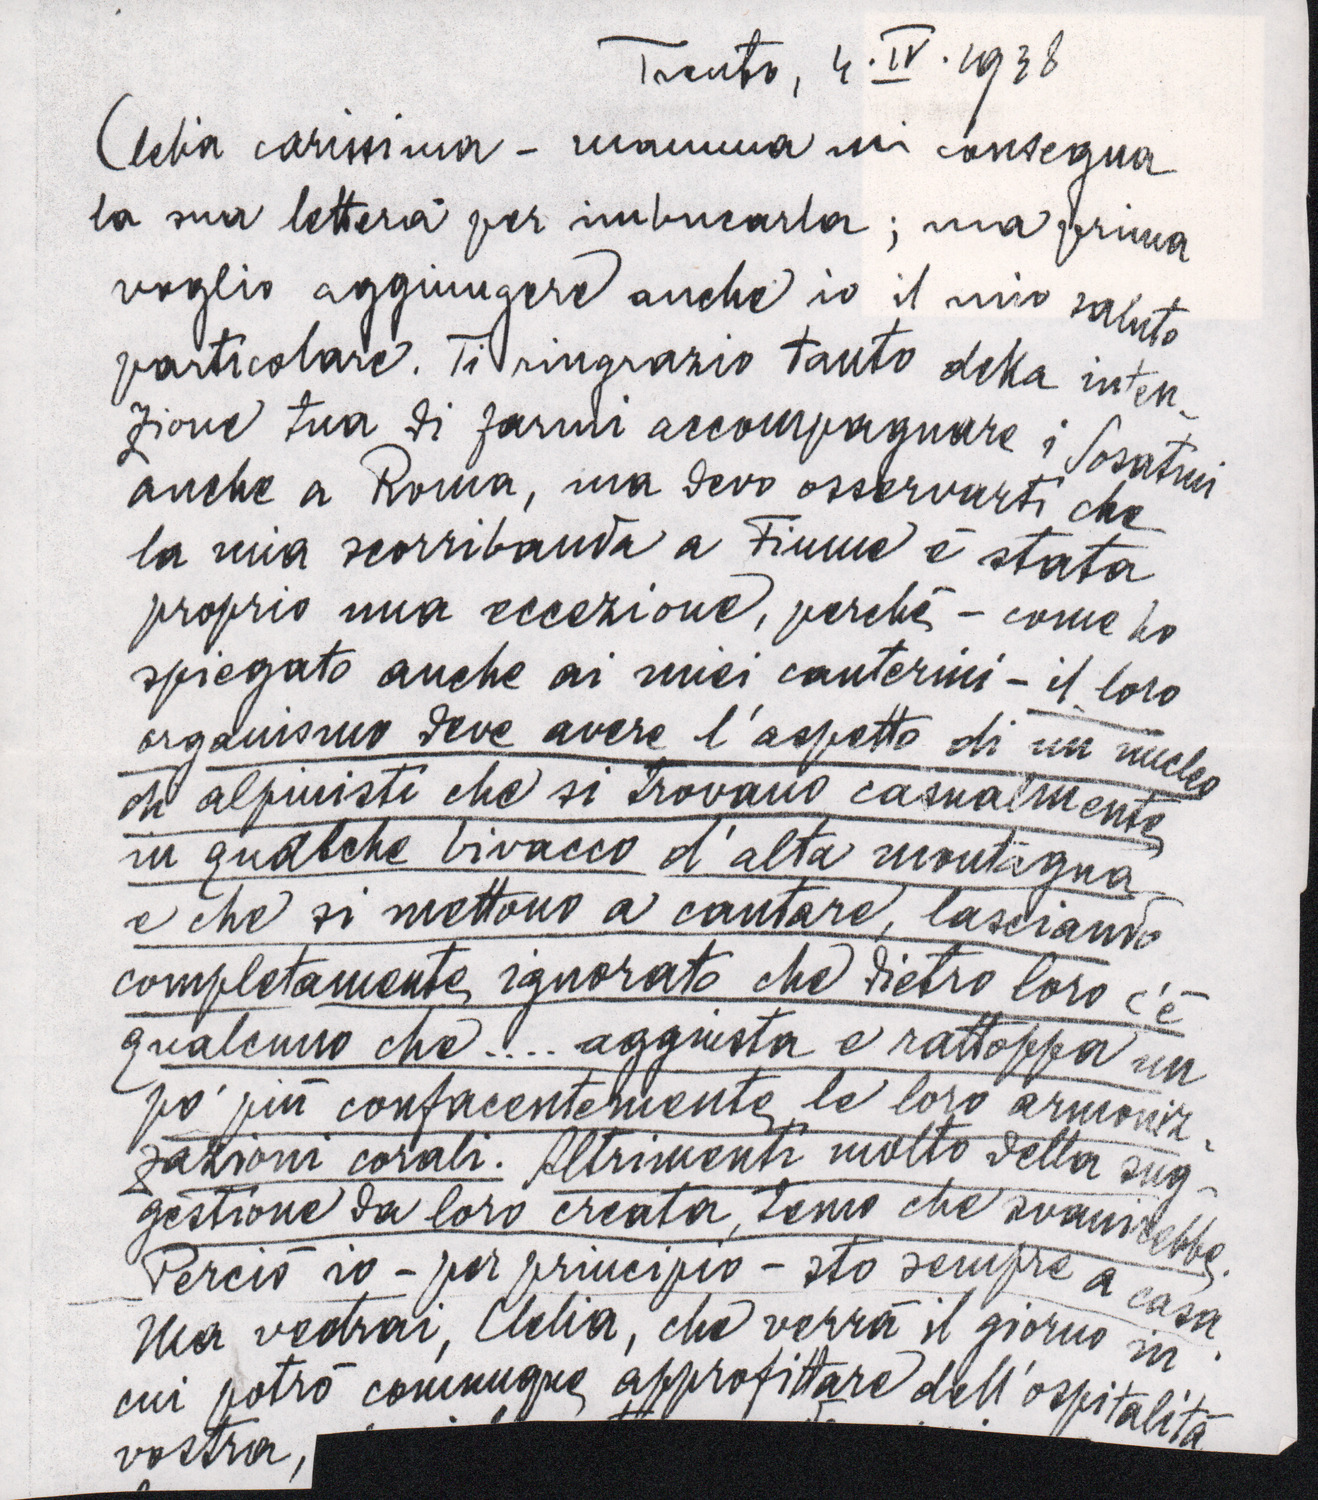 Trento, 4.IV.1938
Clelia carissima - mamma mi consegna
la sua lettera per imbucarla; ma prima
voglio aggiungere anche io il mio saluto
particolare. Ti ringrazio tanto della inten-
zione tua di farmi accompagnare i Sosatini
anche a Roma, ma devo osservarti che
la mia scorribanda a Fiume è stata
proprio una eccezione, perchè - come ho
spiegato anche ai miei canterini - il loro
organismo deve avere l'aspetto di un nucleo
di alpinisti che si trovano casualmente
in qualche bivacco d'alta montagna
e che si mettono a cantare, lasciando
completamente ignorato che dietro loro c'è
qualcuno che .... aggiusta e rattoppa un
po' più confacentemente le loro armoniz-
zazioni corali. Altrimenti molto della sug-
gestione da loro creata, temo che svanirebbe.
Perciò io - per principio - sto sempre a casa.
Ma vedrai, Clelia, che verrà il giorno in
cui potrò comunque approfittare dell'ospitalità
vostra,